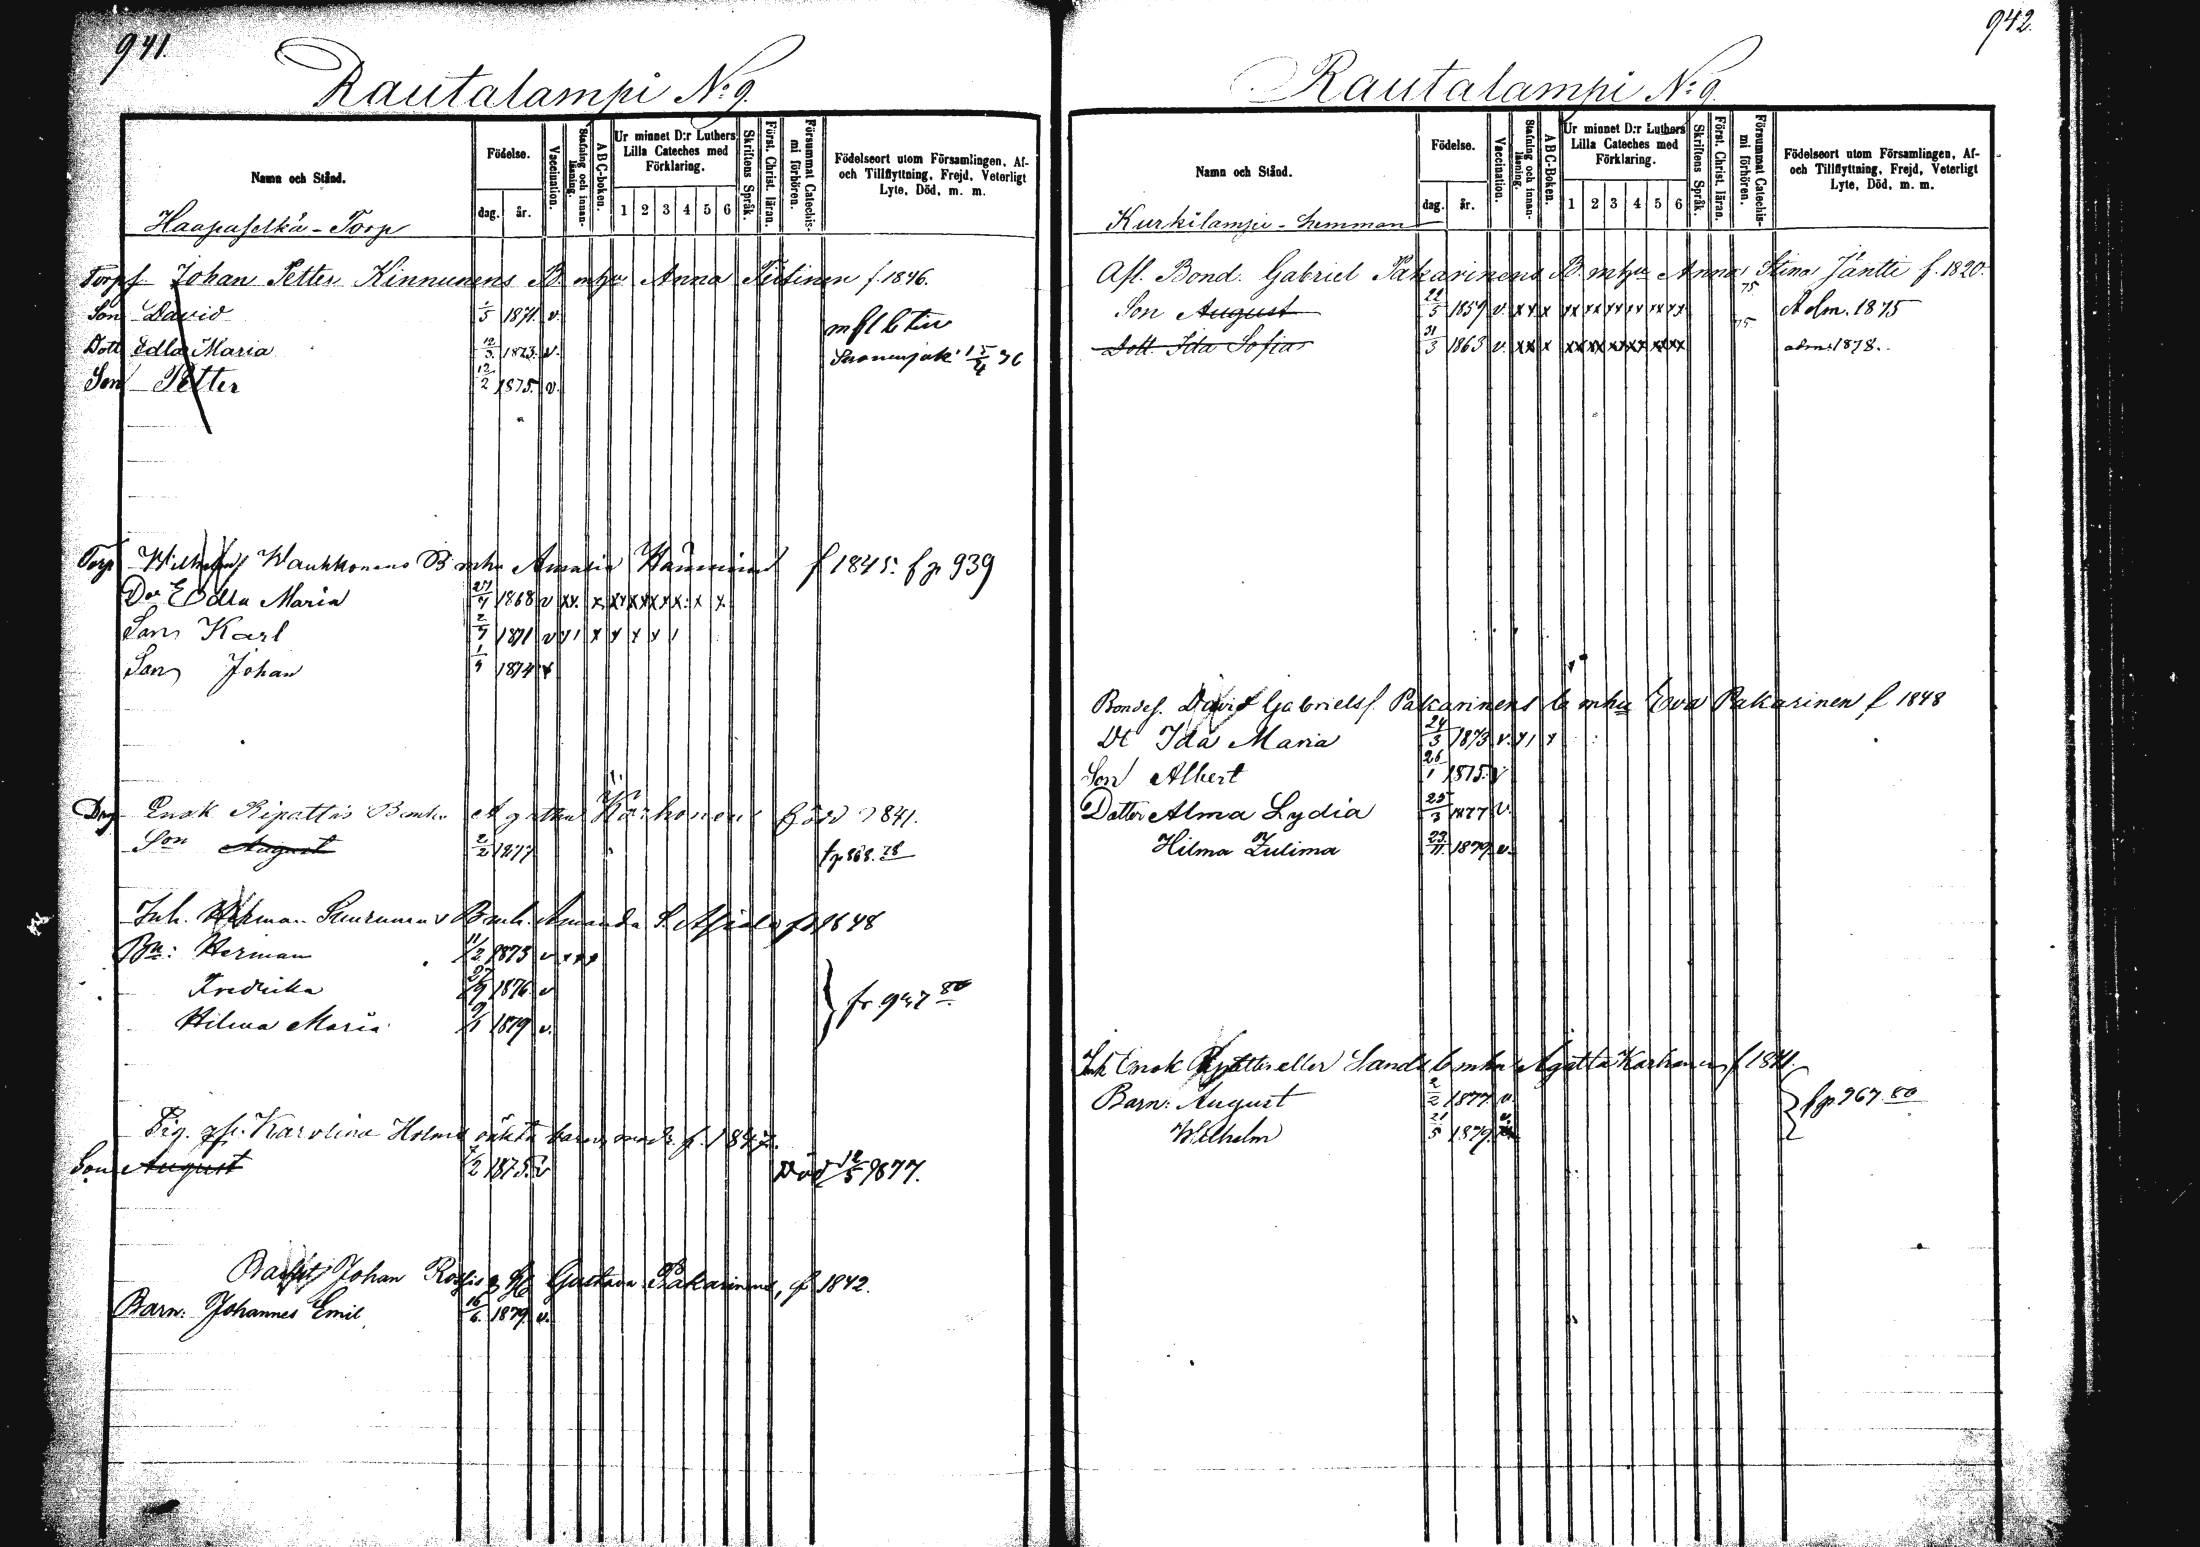 941.
Rautalampi No 9.
Namn och Stånd.
Födelse.
dag.
år.
Vaccination.
Stafning och innan-läsning.
ABC-boken.
Ur minnet D:r Luthers Lilla Cateches med Förklaring.
1 2 3 4 5 6
Skriftens Språk.
Först. Christ. läran.
Försummat Catechis-mi förhören.
Födelseort utom Församlingen, Af-
och Tillflyttning, Frejd, Veterligt
Lyte, Död, m. m.
Haapaselkä - Torp
Torpf Johan Petter Kinnunens B mhu Anna f. 1846.
Son David 1/5 1871. v.
Dott Edla Maria 12/3 1873. v. 15/4 76
Son Petter 12/2 1875. v.
Torp Wilhelm Waukkonens B mhu f 1845. f p 939
Dr Edla Maria 27/7 1868 v xx x xx xx xx x x x
Son Karl 2/7 1871 v x1 x x x x 1
Son Johan 1/9 1874 v
Enok Ripattis Bmhu Agatha Karhonen född 1841.
Son August 2/2 1877 fp 868. 78
Inh. Herman Bmh. Amanda f. 1848
Bn: Herman 11/2 1873 v x x x
Fredrika 27/9 1876. v
Hilma Maria 9/1 1879 v.
fr 947 80
Pig. Karolina Holms oäkta barns mod. f. 1847.
Son August 1/2 1875. v Död 12/5 1877.
Johan Gustava Pakarinens, f 1842.
Barn: Johannes Emil 16/6. 1879. v.
942.
Rautalampi No 9.
Namn och Stånd.
Födelse.
dag.
år.
Vaccination.
Stafning och innan-läsning.
ABC-Boken.
Ur minnet D:r Luthers Lilla Cateches med Förklaring.
1 2 3 4 5 6
Skriftens Språk.
Först. Christ. läran.
Försummat Catechis-mi förhören.
Födelseort utom Församlingen, Af-
och Tillflyttning, Frejd, Veterligt
Lyte, Död, m. m.
Kurkilampi - hemman
Afl. Bond. Gabriel Pakarinens B. mhu Anna Stina Jäntti f. 1820.
Son August 22/5 1859 v. xx x xx xx xx xx xx xx 75 Adm. 1875
Dott. Ida Sofia 31/3 1863 v. xx x xx xx xx xx xx 75 adm. 1878.
Bondes. David Gabrielsf. Pakarinens b mhu Eva Pakarinen f 1848
Dt Ida Maria 24/3 1873 v. x1 x
Son Albert 26/1 1875. v
Dotter Alma Lydia 25/3 1877 v.
Hilma Zulima 23/11. 1879. v.
Inh Enok Ripattis eller Sands b mhu Agatta Karhonen f 1841.
Barn: August 2/2 1877. v.
Wilhelm 21/5 1879. v.
fp 967 80